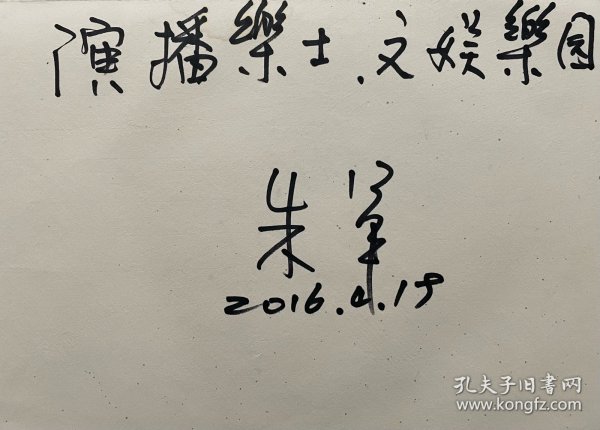 演播樂土、文娱樂园
朱軍
2016.4.19
孔夫子旧書网
www.kongfz.com